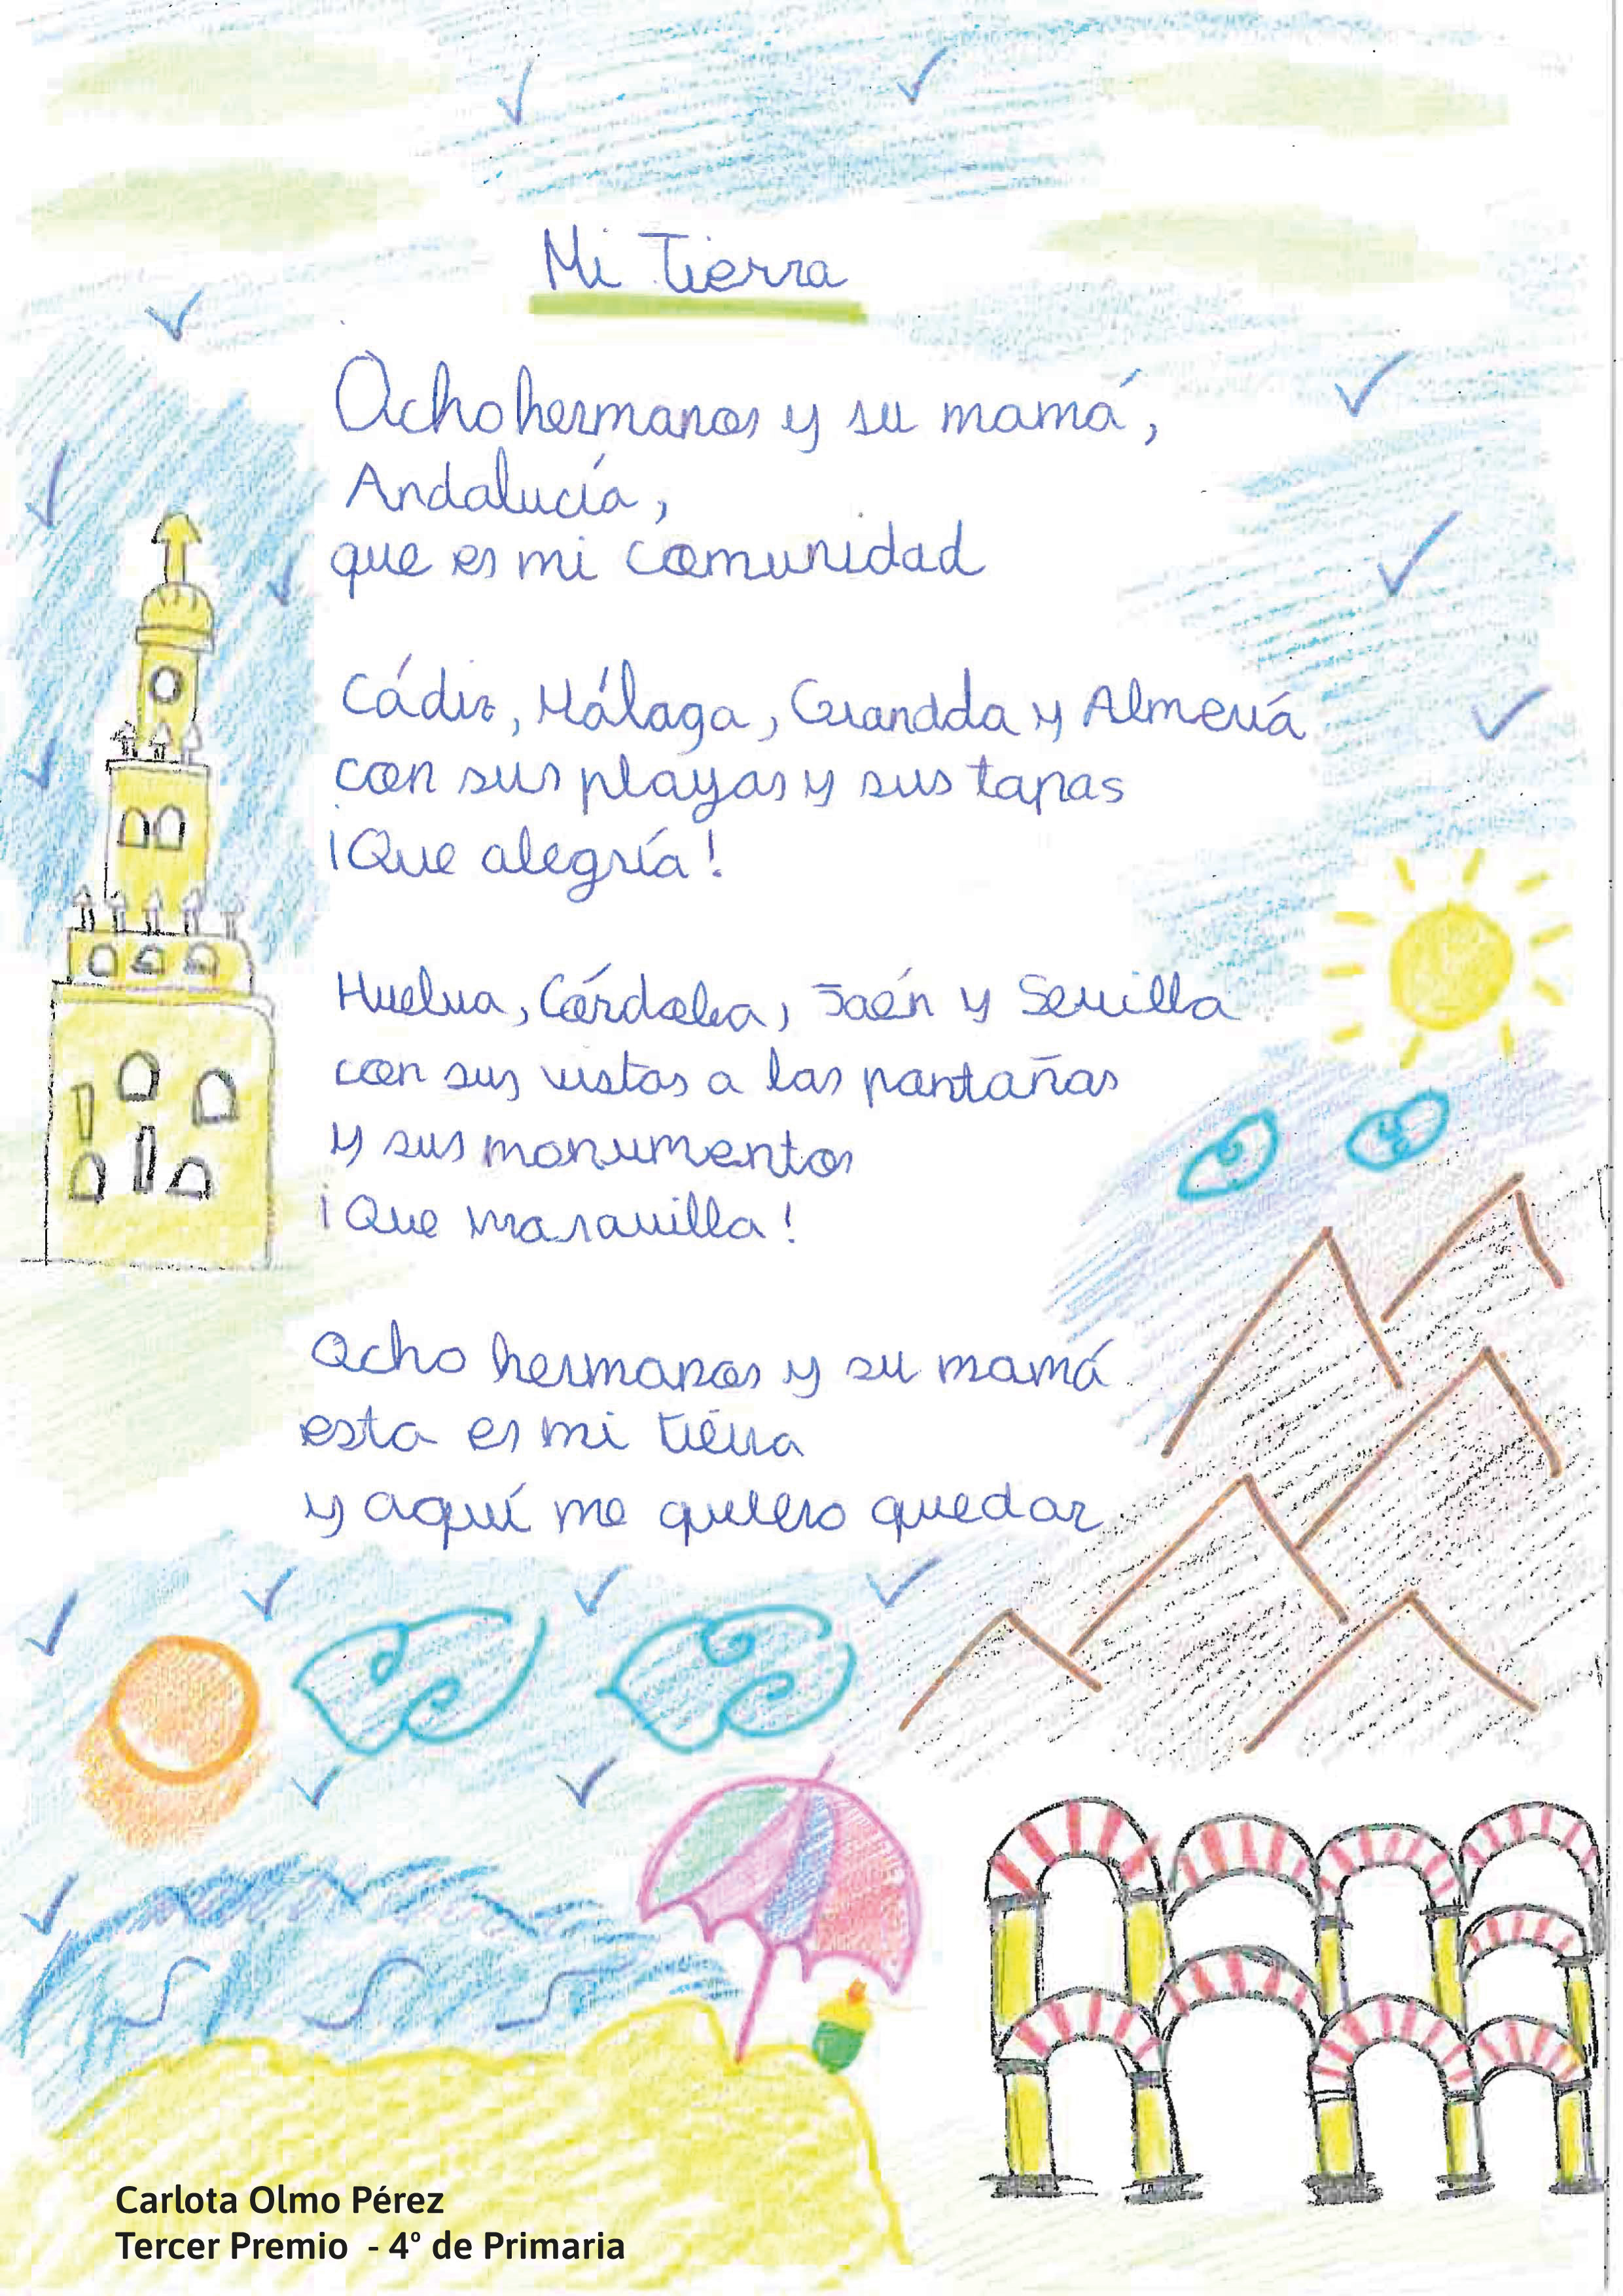 Mi Tierra
Ocho hermanos y su mamá,
Andalucía,
que es mi comunidad
Cádiz, Málaga, Grandda y Almería
con sus playas y sus tapas
¡Que alegría!
Huelva, Córdoba, Jaén y Sevilla
con sus vistas a las pantañas
y sus monumentos
¡Que maravilla!
Ocho hermanos y su mamá
esta es mi tierra
y aquí me quiero quedar
Carlota Olmo Pérez
Tercer Premio - 4º de Primaria